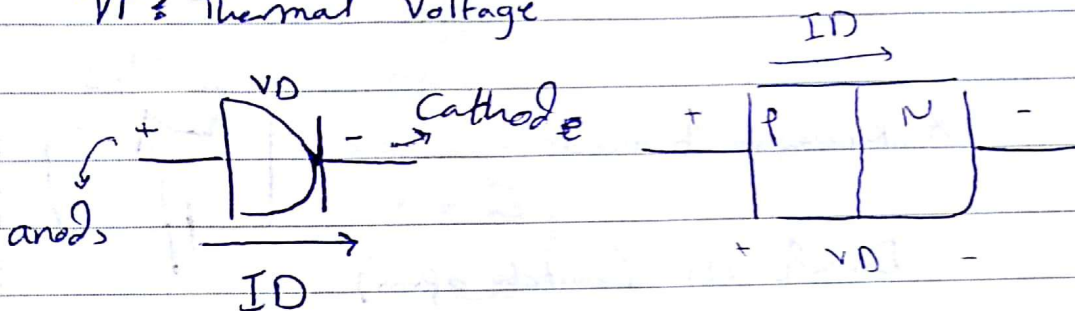 VT : Thermal Voltage
ID
VD
Cathode
+ -
+ P N -
anods
+ VD -
ID